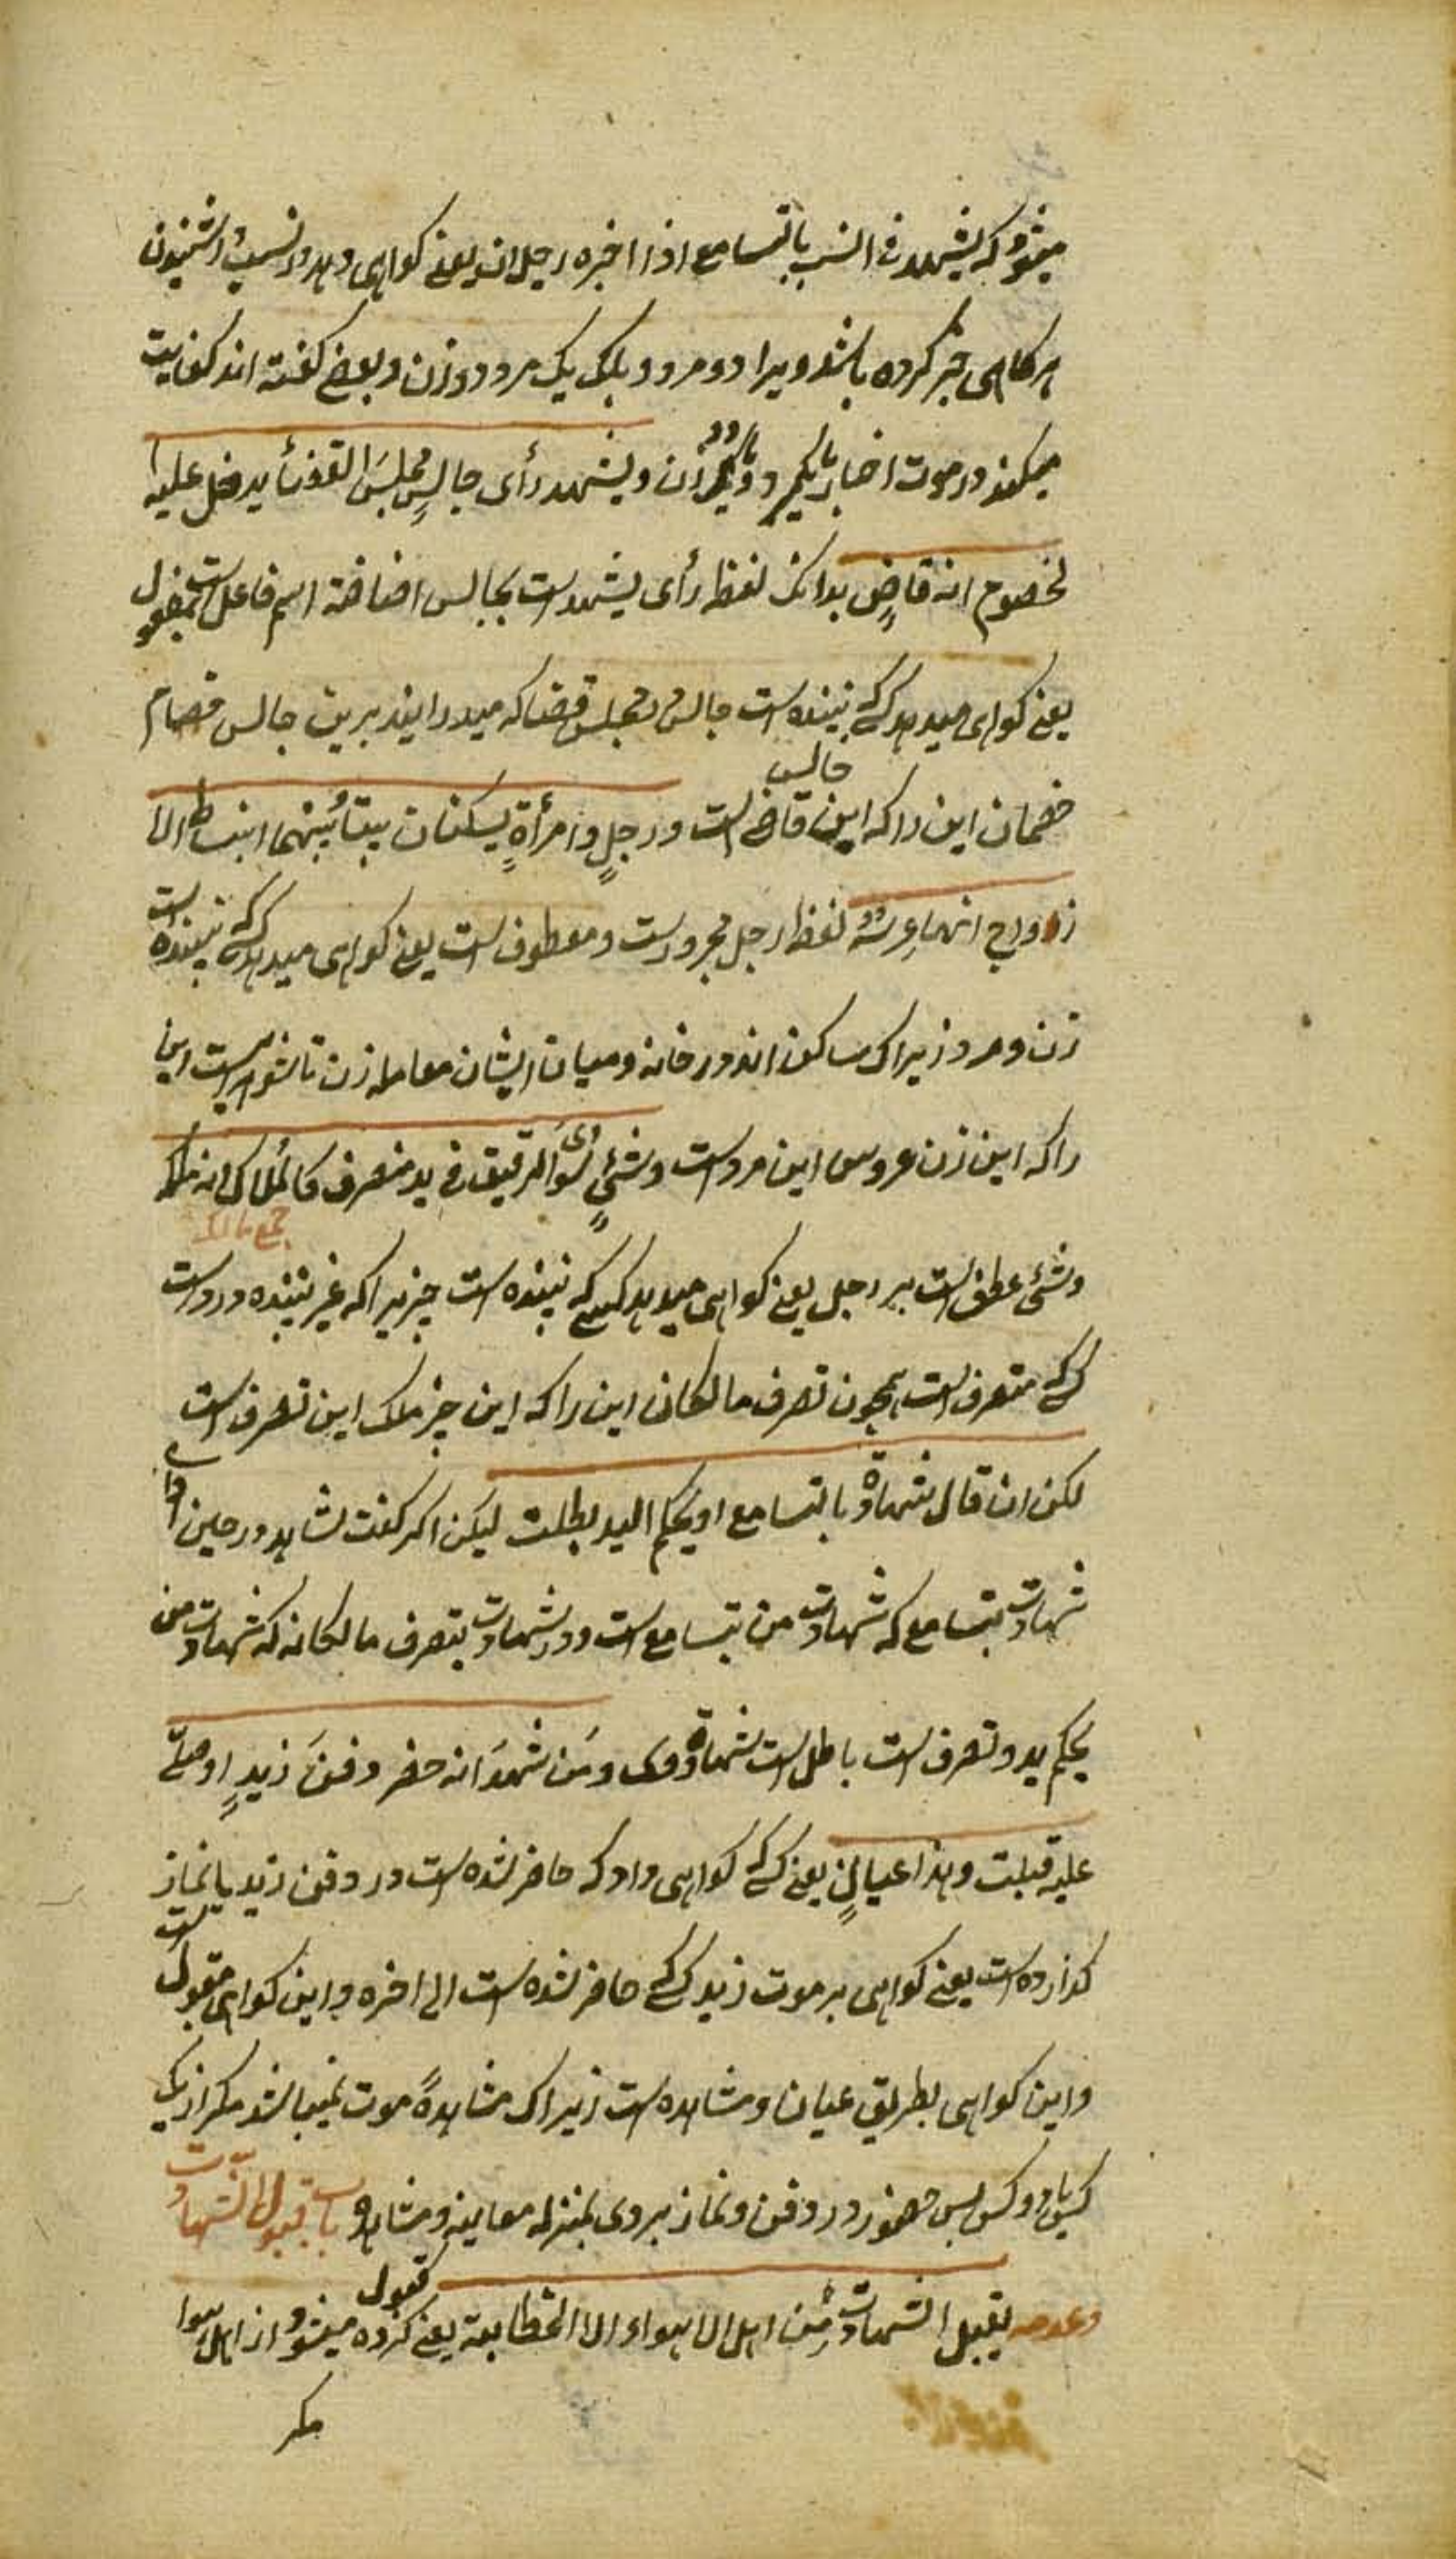 میشود که یشهد فی النسب بالتسامع اذا اخبره رجلان یعنی کواهی دهد در نسب بشنیدن
هر کاهی خبر کرده باشند ویرا دو مرد و بلکه یک مرد و دو زن و بعضی کفته اند کفایت
میکند در موت اخبار یکمرد و یا یکزن ویشهد رأی جالسٍ مجلسَ القضأ یدخل علیه
لخصوم انه قاضٍ بدانکه لفظ رأی یشهد است بجالس اضافة اسم فاعل است بمفعول
یعنی کواهی میدهد کسیکه بیننده است جالس مجلس قضا که میدرایند برین جالس خصام
خصمان این را که این جالس قاضی است ورجلٍ وامرأةٍ یسکنان بیتاً بینهما انبساط الا
زواج انهما عرسه لفظ رجل مجرور است و معطوف است یعنی کواهی میدهد کسیکه بیننده است
زن و مرد زیراکه ساکن اند در خانه و میان ایشان معامله زن تا شوهر است این
را که این زن عروس این مرد است وشئ سوی الرقیق فی ید متصرف کالملاک انه ملکه
جمع مالک
وشئ عطف است بر رجل یعنی کواهی میدهد کسی که بیننده است چیزیرا که غیر بنده در دست
کسیکه متصرف است همچون تصرف مالکان این را که این چیز ملک این تصرف است
لکن ان قال شهادة بالتسامع او بحکم الید بطلت لیکن اکر کفت شاهد در حین ادای
شهادت بتسامع که شهادت من بتسامع است و در شهادت بتصرف مالکانه که شهادت من
بحکم ید و تصرف است باطل است شهادة وی ومَن شهدَ انه حضر دفنَ زیدٍ او صلی
علیه قبلت وهذا عیانٌ یعنی کسیکه کواهی داد که حاضر شده است در دفن زید یا نماز
کذارده است یعنی کواهی بر موت زید کسیکه حاضر شده است الی اخره و این کواهی مقبول است
و این کواهی بطریق عیان و مشاهده است زیراکه مشاهدهٔ موت نمیباشد مکر از یک
کس یا دو کس پس حضور در دفن و نماز بر وی بمنزله معاینه و مشاهده باب قبول الشهادت
وعدمه یقبل الشهادت من اهل الاهواء الا الخطابیة یعنی قبول کرده میشود از اهل هوا
مکر